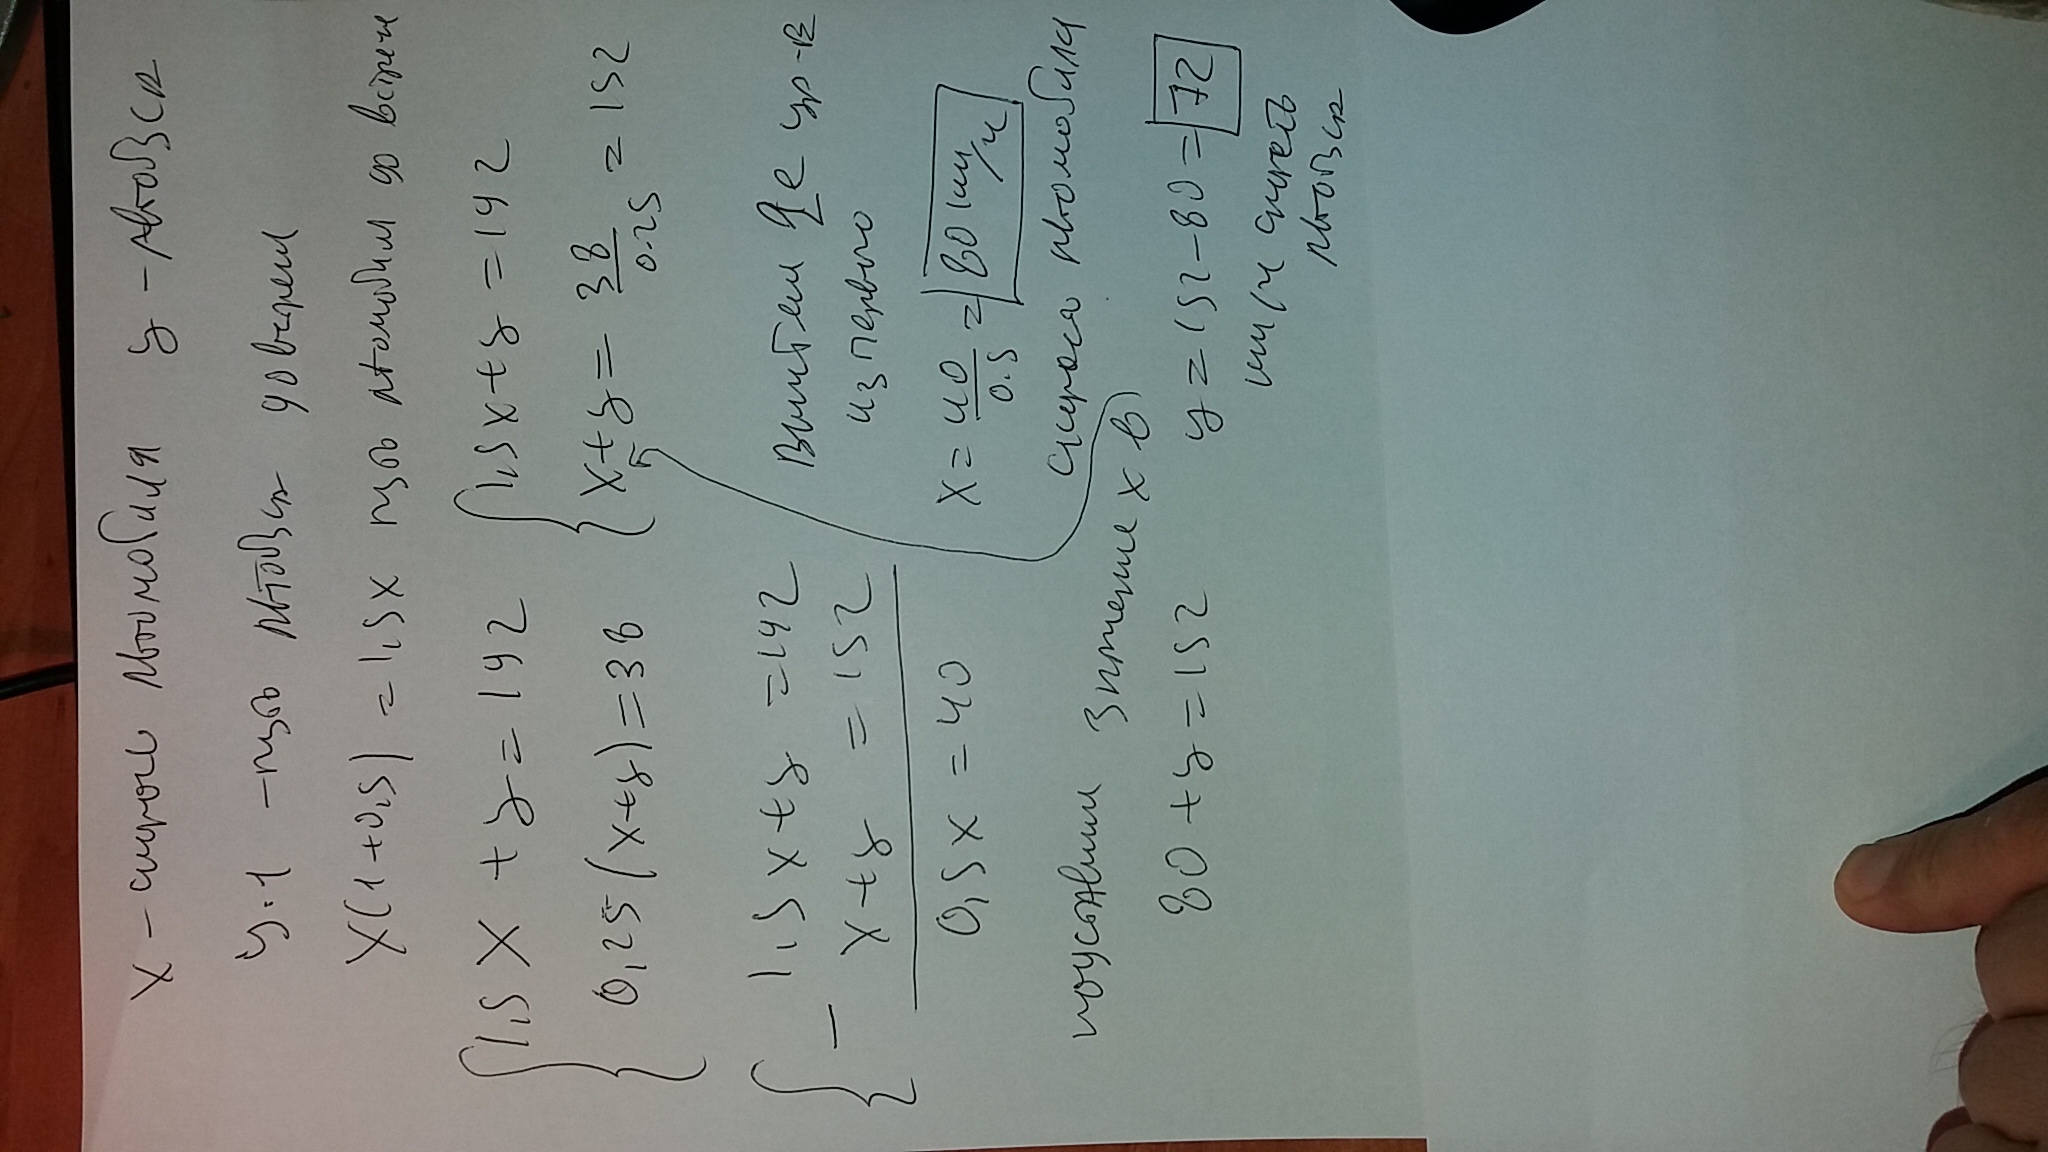 x - скорость автомобиля   y - автобуса
y·1 - путь автобуса до встречи
x(1+0,5) = 1,5x путь автомобиля до встречи
{ 1,5x + y = 192   { 1,5x + y = 192
0,25(x+y) = 38   x+y = 38/0.25 = 152
{ - 1,5x + y = 192   Вычитаем 2е ур-е
x + y = 152   из первого
0,5x = 40   x = 40/0.5 = 80 км/ч
скорость автомобиля
подставим значение x в
80 + y = 152   y = 152 - 80 = 72
км/ч скорость
автобуса